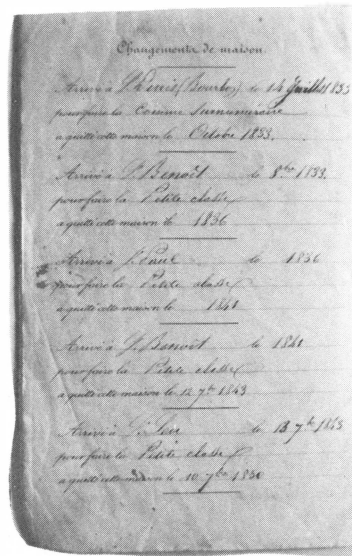 Changements de maison.
Arrivé à St Denis (Bourbon) le 14 Juillet 1833
pour faire la Comme Surnuméraire
a quitté cette maison le Octobre 1833.
Arrivé à St Benoît le 8bre 1833.
pour faire la Petite classe
a quitté cette maison le 1836
Arrivé à St Paul le 1836
pour faire la Petite classe
a quitté cette maison le 1841
Arrivé à St Benoît le 1841
pour faire la Petite classe
a quitté cette maison le 12 7bre 1843
Arrivé à St Leu le 13 7bre 1843
pour faire la Petite classe
a quitté cette maison le 10 7bre 1850